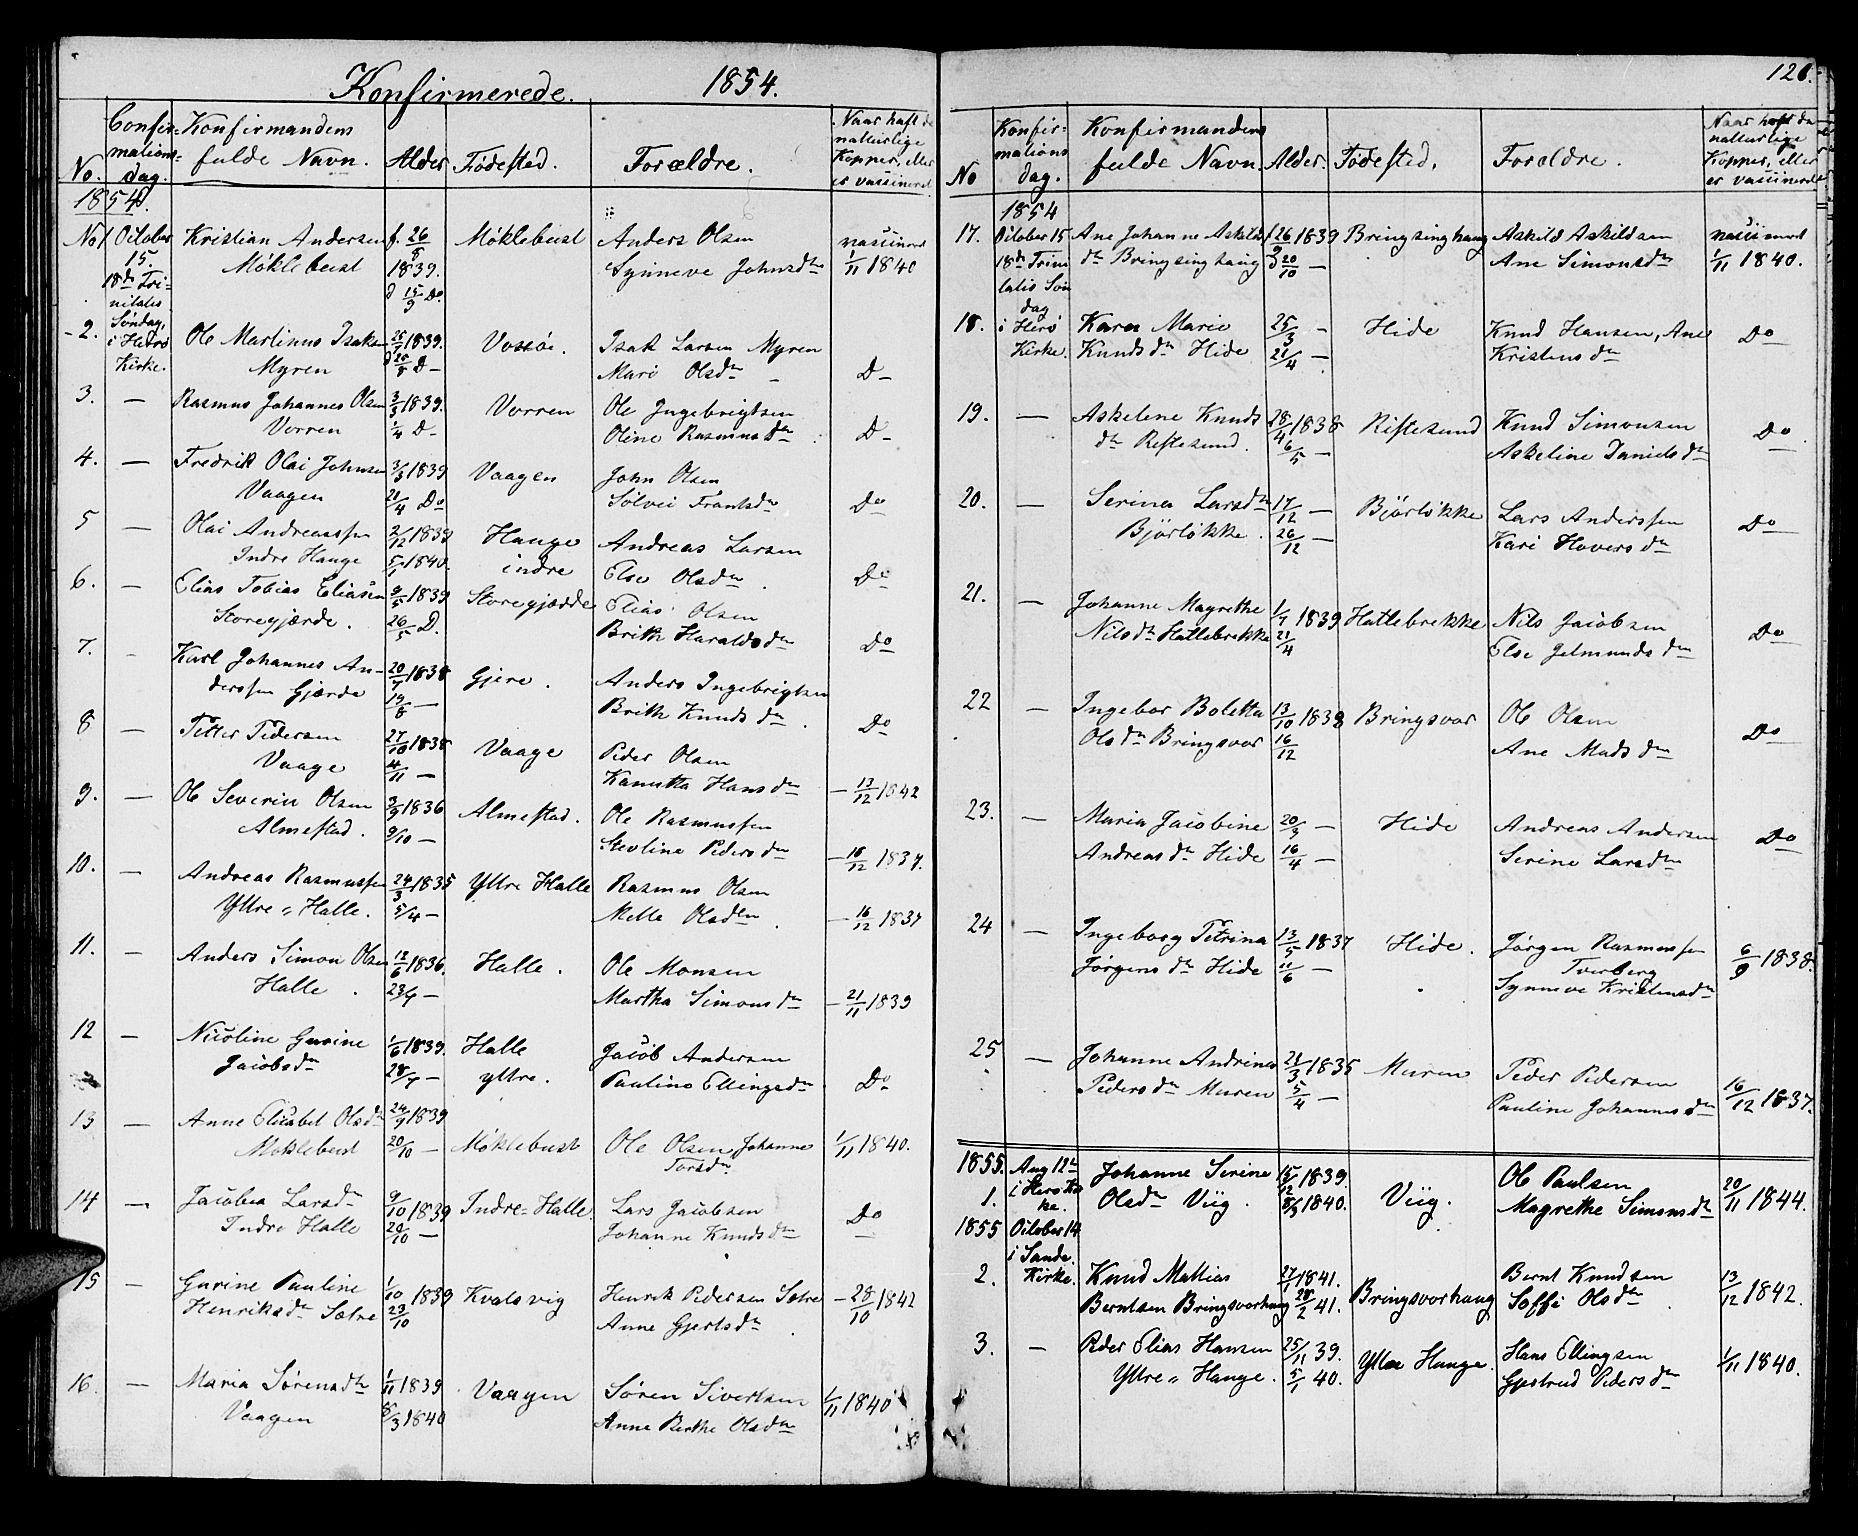 Konfirmerede. 1854.
No. Confir- mations- dag. Konfirmandens fulde Navn. Alder Fødested. Forældre. Naar haft de naturlige Kopper, eller er vassineret
1854.
No 1 October 15. 18de Trinitatis Søndag, i Herø Kirke. Kristian Andersen Møklebust f. 26/8 1839. d 15/9 Do. Møklebust Anders Olsen Synneve Johnsdtr vassineret 1/11 1840
2. Ole Martinus Isaksen Myren 25/7 1839. d 20/8 D- Vossøi. Isak Larsen Myren Mari Olsdtr D-
3. — Rasmus Johannes Olsen Vorren 3/3 1839. 1/4 D- Vorren Ole Ingebrigtsen Oline Rasmusdtr D-
4. — Fredrik Olai Johnsen Vaagen 3/3 1839 21/4 Do Vaagen John Olsen Sølvei Frantsdtr Do
5 — Olai Andreassen Indre Hauge 2/12 1839 5/1 1840. Hauge indre Andreas Larsen Else Olsdtr Do
6. — Elias Tobias Eliasen Storegjærde. 9/5 1839 26/5 D. Storegjærde Elias Olsen Brith Haraldsdtr Do
7. — Karl Johannes Anderssen Gjærde 20/7 1838 19/8 — Gjere. Anders Ingebrigtsen Brith Knudsdtr. Do
8 — Petter Pedersen Vaage 27/10 1838 4/11 — Vaage Peder Olsen Kanutta Hansdtr — 13/12 1842
9. — Ole Severin Olsen Almestad. 3/9 1836 9/10 — Almestad. Ole Rasmussen Stevline Pedersdtr — 18/12 1837.
10. — Andreas Rasmussen Yttre Halle. 24/3 1835 5/4 — Yttre Halle Rasmus Olsen Mette Olsdtr. — 16/12 1837
11. — Anders Simon Olsen Halle. 12/6 1836. 23/7 — Halle. Ole Monsen Martha Simonsdtr — 21/11 1839
12 — Nicoline Gurine Jacobsdtr 1/6 1839. 28/7 — Halle yttre. Jacob Andersen Pauline Ellingsdtr Do
13 — Anne Elisabet Olsdtr Møklebust 24/9 1839 20/10 — Møklebust Ole Olsen Johanne Torsdtr 1/11 1840.
14 — Jacobea Larsdtr Indre Halle 9/10 1839 20/10 — Indre-Halle. Lars Jacobsen Johanne Knudsdtr Do
15 — Gurine Pauline Henriksdtr Sætre 1/10 1839 23/10 Kvalsvig Henrik Pedersen Sætre Anne Gjertsdtr. — 28/10 1842
16. — Maria Sørensdtr Vaagen 1/11 1839 8/3 1840 Vaagen Søren Sivertsen Anne Berthe Olsdtr 1/11 1840
126.
No Konfir- mations dag. Konfirmandens fulde Navn. Alder. Fødested. Forældre. Naar haft de naturlige Kopper, eller er vassinerede
1854
17. October 15 18de Trinitatis Søndag i Herø Kirke. Ane Johanne Askildsdtr Bringsinghaug f 26/9 1839 20/10 — Bringsinghaug Askild Askildsen Ane Simonsdtr vassineret 1/11 1840.
18. Karen Marie Knudsdtr Hide 25/3 — 21/4 — Hide Knud Hansen, Ane Kristensdtr Do
19. — Askelene Knudsdtr Riftesund. 28/4 1838 6/5 — Riftesund Knud Simonsen Askeline Danielsdtr Do
20. — Serina Larsdtr Bjørløkke. 17/12 — 26/12 — Bjørløkke Lars Anderssen Kari Hoversdtr Do
21. — Johanne Magrethe Nilsdtr Hattlebrekke 1/7 1839 21/4 Hatlebrekke Nils Jacobsen Else Jetmundsdtr Do
22 — Ingebor Boletta Olsdtr Bringsvor 13/10 1838 16/12 Bringsvor Ole Olsen Ane Madsdtr Do
23. — Maria Jacobine Andreasdtr Hide 20/3 — 16/4 — Hide Andreas Andersen Serine Larsdtr Do
24 — Ingeborg Petrina Jørgensdtr Hide 13/5 1837 11/6 — Hide. Jørgen Rasmussen Tverberg Synneve Kristensdtr 6/9 1838.
25 — Johanne Andrina Pedersdtr Muren 21/3 1835 5/4 — Muren Peder Pedersen Pauline Johannesdtr 16/12 1837.
1855. 1. Aug 12te i Herø Kirke. Johanne Serine Olsdtr Viig. 15/12 1839. 8/3 1840. Viig. Ole Paulsen Magrethe Simonsdtr 20/11 1844.
1855 2. October 14 i Sande Kirke. Knud Mathias Berntsen Bringsvorhaug 27/1 1841. 28/2 41. Bringsvorhaug Bernt Knudsen Soffi Olsdtr. 13/12 1842.
3. — Peder Elias Hansen Yttre Hauge. 25/11 39. 5/1 40. Yttre Hauge. Hans Ellingsen Gjertrud Pedersdtr 1/11 1840.